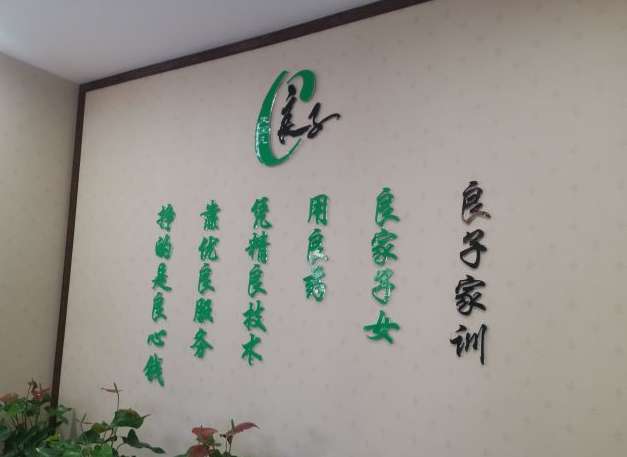 良子
良子家训
良家子女
用良药
凭精良技术
靠优良服务
挣的是良心钱